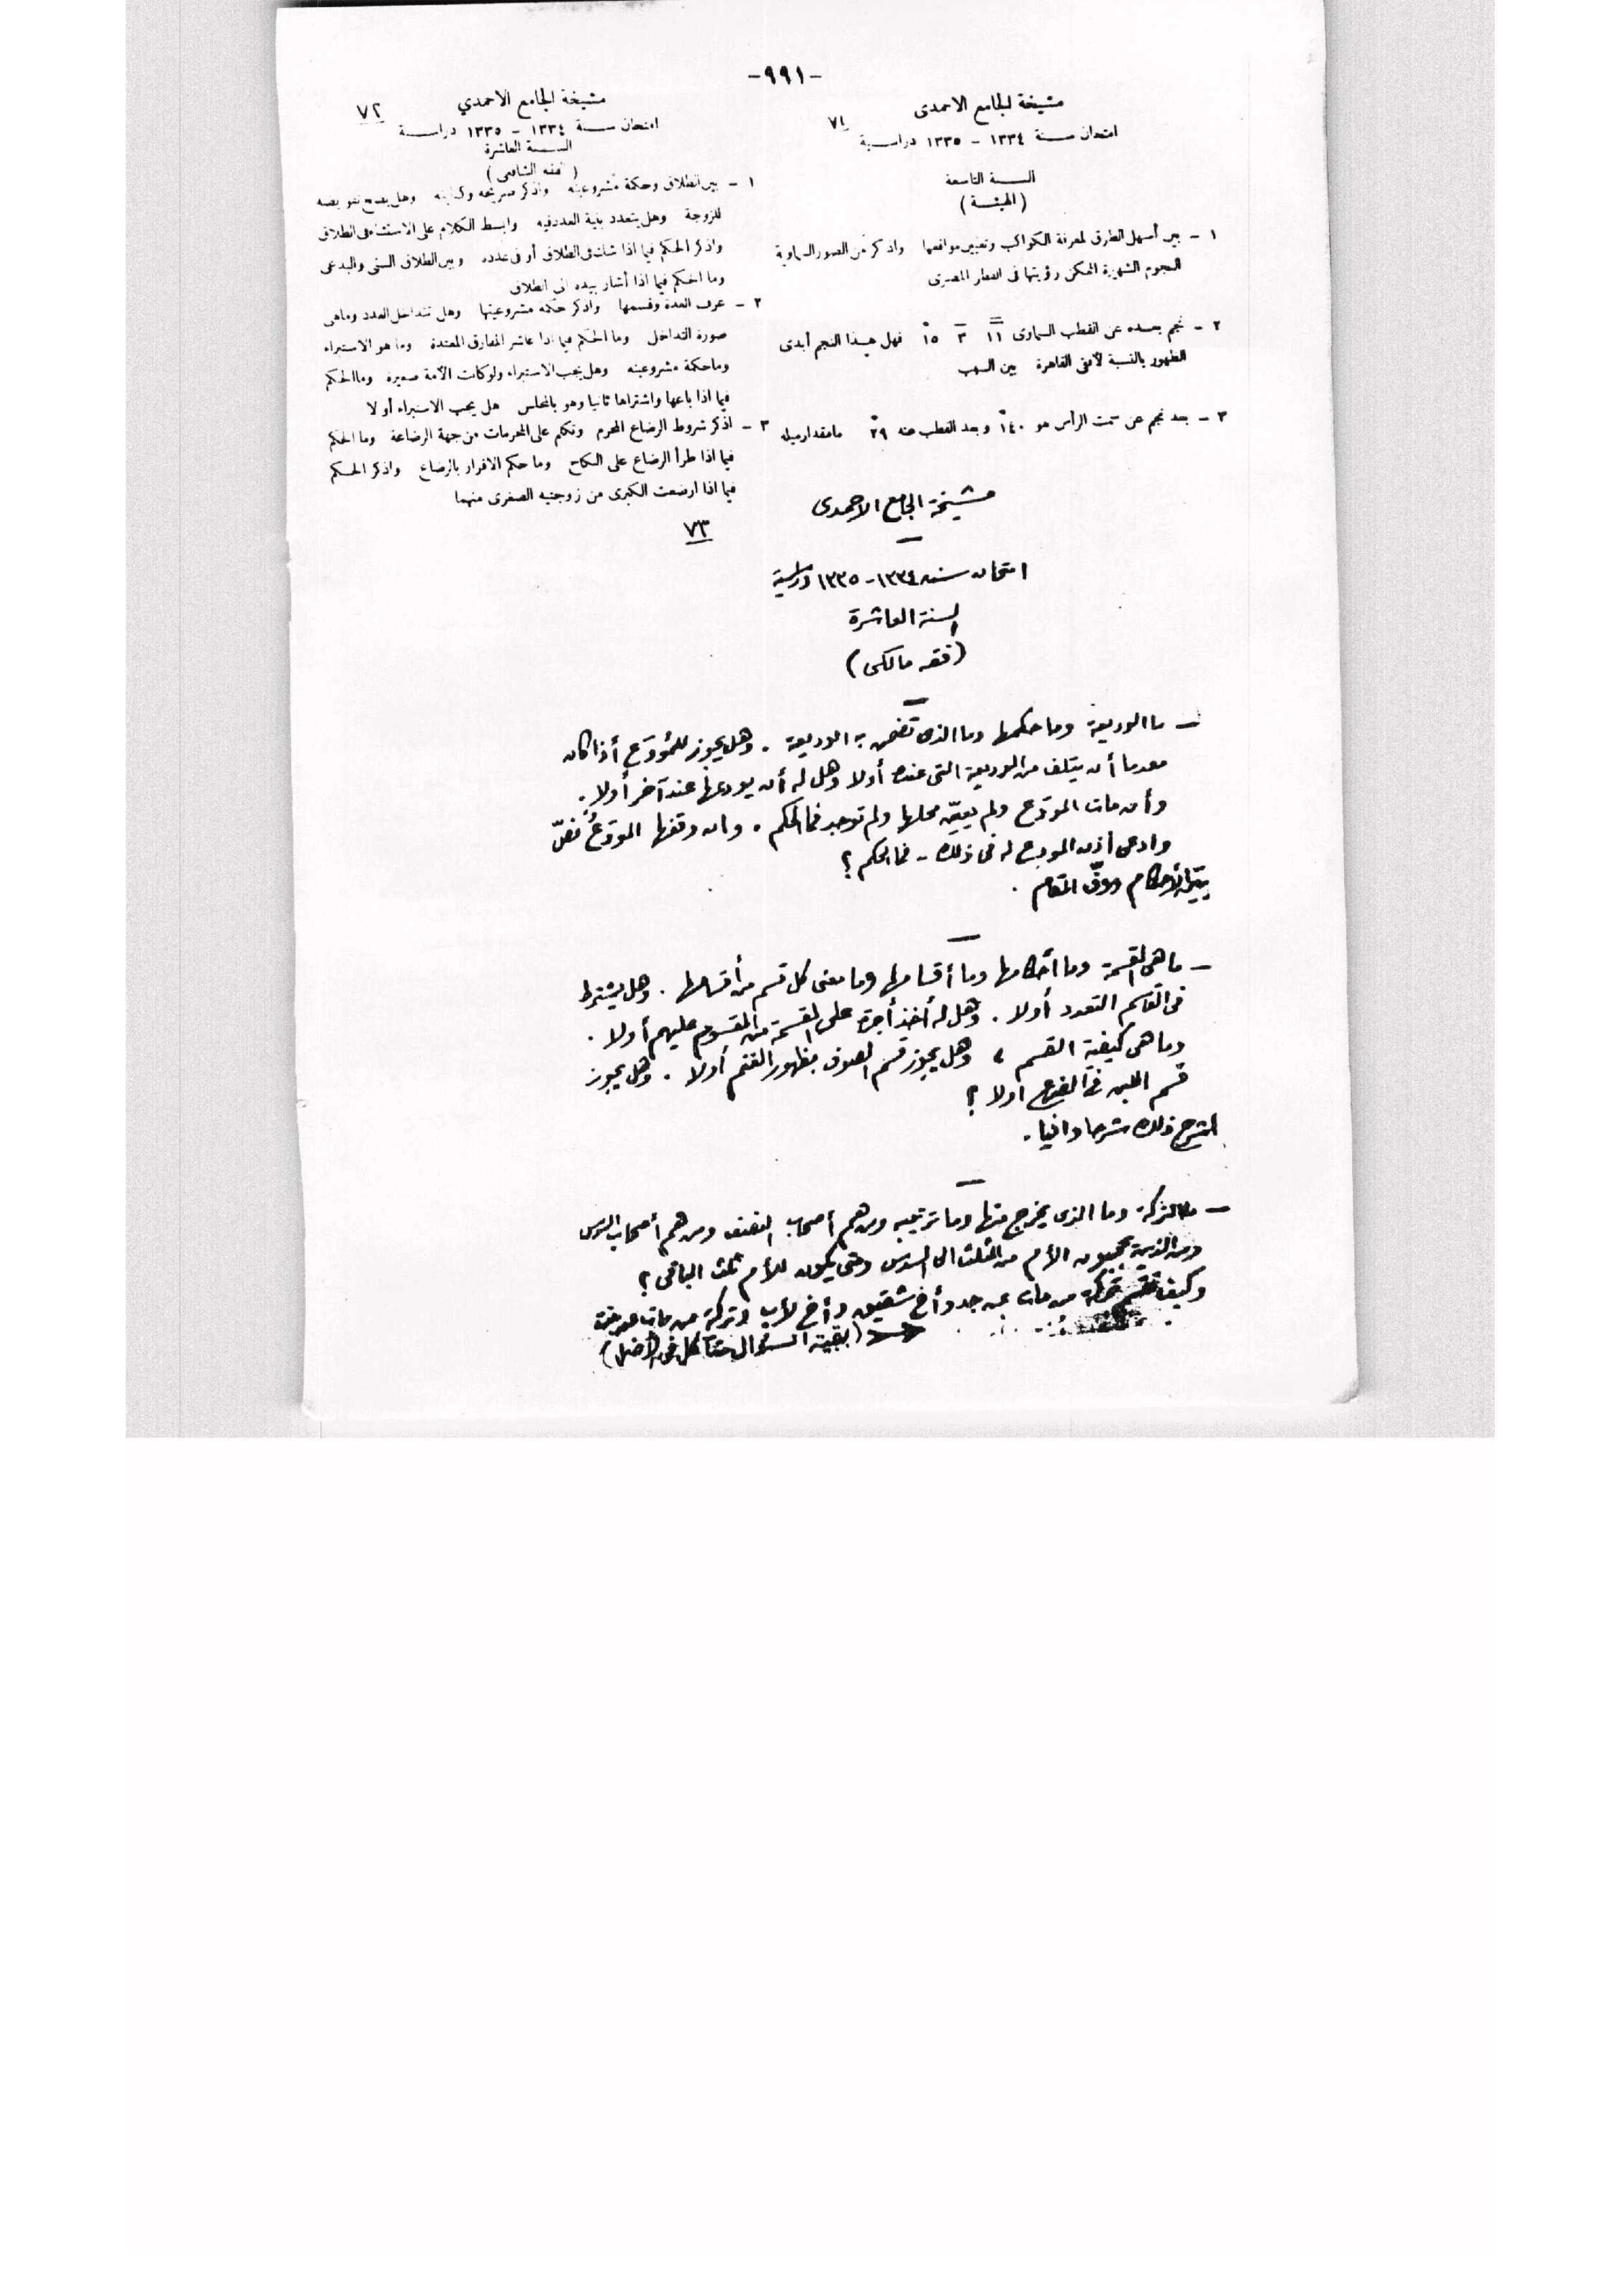 -٩٩١-
مشيخة الجامع الاحمدى
٧١
امتحان سنة ١٣٣٤ - ١٣٣٥ دراسية
السنة التاسعة
(الهيئة)
١ - بين أسهل الطرق لمعرفة الكواكب وتعيين مواقعها واذكر من الصور السماوية
النجوم الشهيرة الممكن رؤيتها فى القطر المصرى
٢ - نجم بعده عن القطب السماوى ١١ ٣ ١٥ فهل هذا النجم أبدى
الظهور بالنسبة لأفق القاهرة بين السبب
٣ - بعد نجم عن سمت الرأس هو ١٤٠ وبعد القطب عنه ٢٩ مامقدارميله
مشيخة الجامع الاحمدي
٧٢
امتحان سنة ١٣٣٤ - ١٣٣٥ دراسية
السنة العاشرة
(فقه الشافعى)
١ - بين الطلاق وحكمة مشروعيته واذكر صريحه وكنايته وهل يصح تفويضه
للزوجة وهل يتعدد بنية العدد فيه وابسط الكلام على الاستثناء فى الطلاق
واذكر الحكم فيما اذا شك فى الطلاق أو فى عدده وبين الطلاق السنى والبدعى
وما الحكم فيما اذا أشار بيده الى الطلاق
٢ - عرف العدة وقسمها واذكر حكمة مشروعيتها وهل تتداخل العدد وماهى
صورة التداخل وما الحكم فيما اذا عاشر المفارق المعتدة وما هو الاستبراء
وماحكمة مشروعيته وهل يجب الاستبراء ولوكانت الأمة صغيرة وما الحكم
فيما اذا باعها واشتراها ثانيا وهو بالمجلس هل يجب الاستبراء أو لا
٣ - اذكر شروط الرضاع المحرم وتكلم على المحرمات من جهة الرضاعة وما الحكم
فيما اذا طرأ الرضاع على النكاح وما حكم الاقرار بالرضاع واذكر الحكم
فيما اذا ارضعت الكبرى من زوجتيه الصغرى منهما
٧٣
مشيخة الجامع الاحمدى
امتحان سنه ١٣٣٤-١٣٣٥ دراسية
السنة العاشرة
(فقه مالكى)
- ما الوديعة وما حكمها وما الذى تضمن به الوديعة . وهل يجوز للمُودَع أذا كان
معدما أن يتلف من الوديعة التى عنده أولا وهل له أن يودعها عند آخر أولا .
وأن مات المودَع ولم يعيّن محلها ولم توجد فما الحكم . وان دفعها المودَعُ
وادعى أذن المودِع له فى ذلك - فما الحكم ؟
بيّن الأحكام ووفّ المقام .
- ما هى القسمة وما أحكامها وما أقسامها وما معنى كل قسم من أقسامها . وهل يشترط
فى القاسم التعدد أولا . وهل له أخذ أجرة على القسمة من المقسوم عليهم أولا .
وما هى كيفية القسم ، وهل يجوز قسم الصوف بظهور الغنم أولا . وهل يجوز
قسم اللبن فى الضرع أولا ؟
اشرح ذلك شرحا وافيا .
- ما التركة وما الذى يخرج منها وما ترتيبه ومن هم أصحاب النصف ومن هم أصحاب السدس
ومن الذين يحجبون الأم من الثلث الى السدس ومتى يكون للأم ثلث الباقى ؟
وكيف تقسم تركة من مات عن جد وأخ شقيق وأخ لأب وتركة من مات عن
(بقية السؤال متآكل فى الأصل)